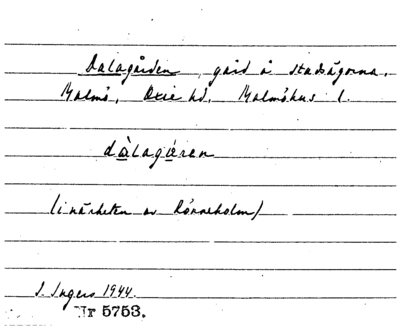 Dalagården, gård å stadsägorna,
Malmö, Oxie hd, Malmöhus l.
dàlagáren
(i närheten av Rönneholm)
I. Ingers 1944.
Nr 5753.